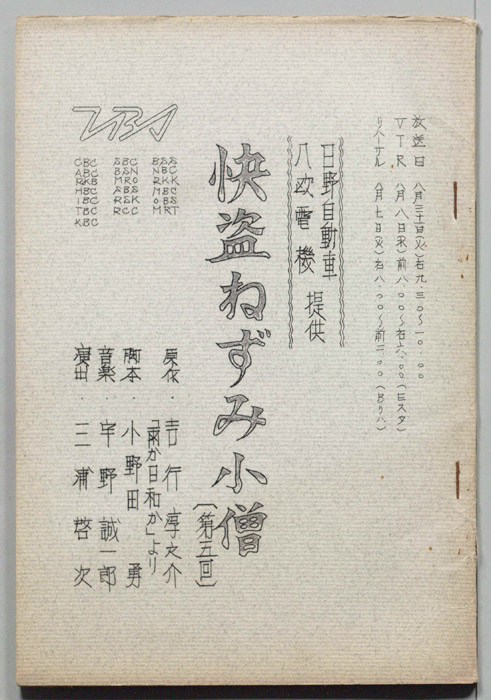 放送日 八月三十日(火)后九.三〇〜一〇.〇〇
VTR 八月八日(木)前八.〇〇〜后六.〇〇(Eスタ)
リハーサル 八月七日(火)后八.〇〇〜前二.〇〇(Bリハ)
日野自動車
八欧電機 提供
快盗ねずみ小僧
〔第五回〕
原作・吉行淳之介
「雨か日和か」より
脚本・小野田勇
音楽・宇野誠一郎
演出・三浦啓次
TBS
CBC
ABC
RKB
HBC
ITC
TBC
KBC